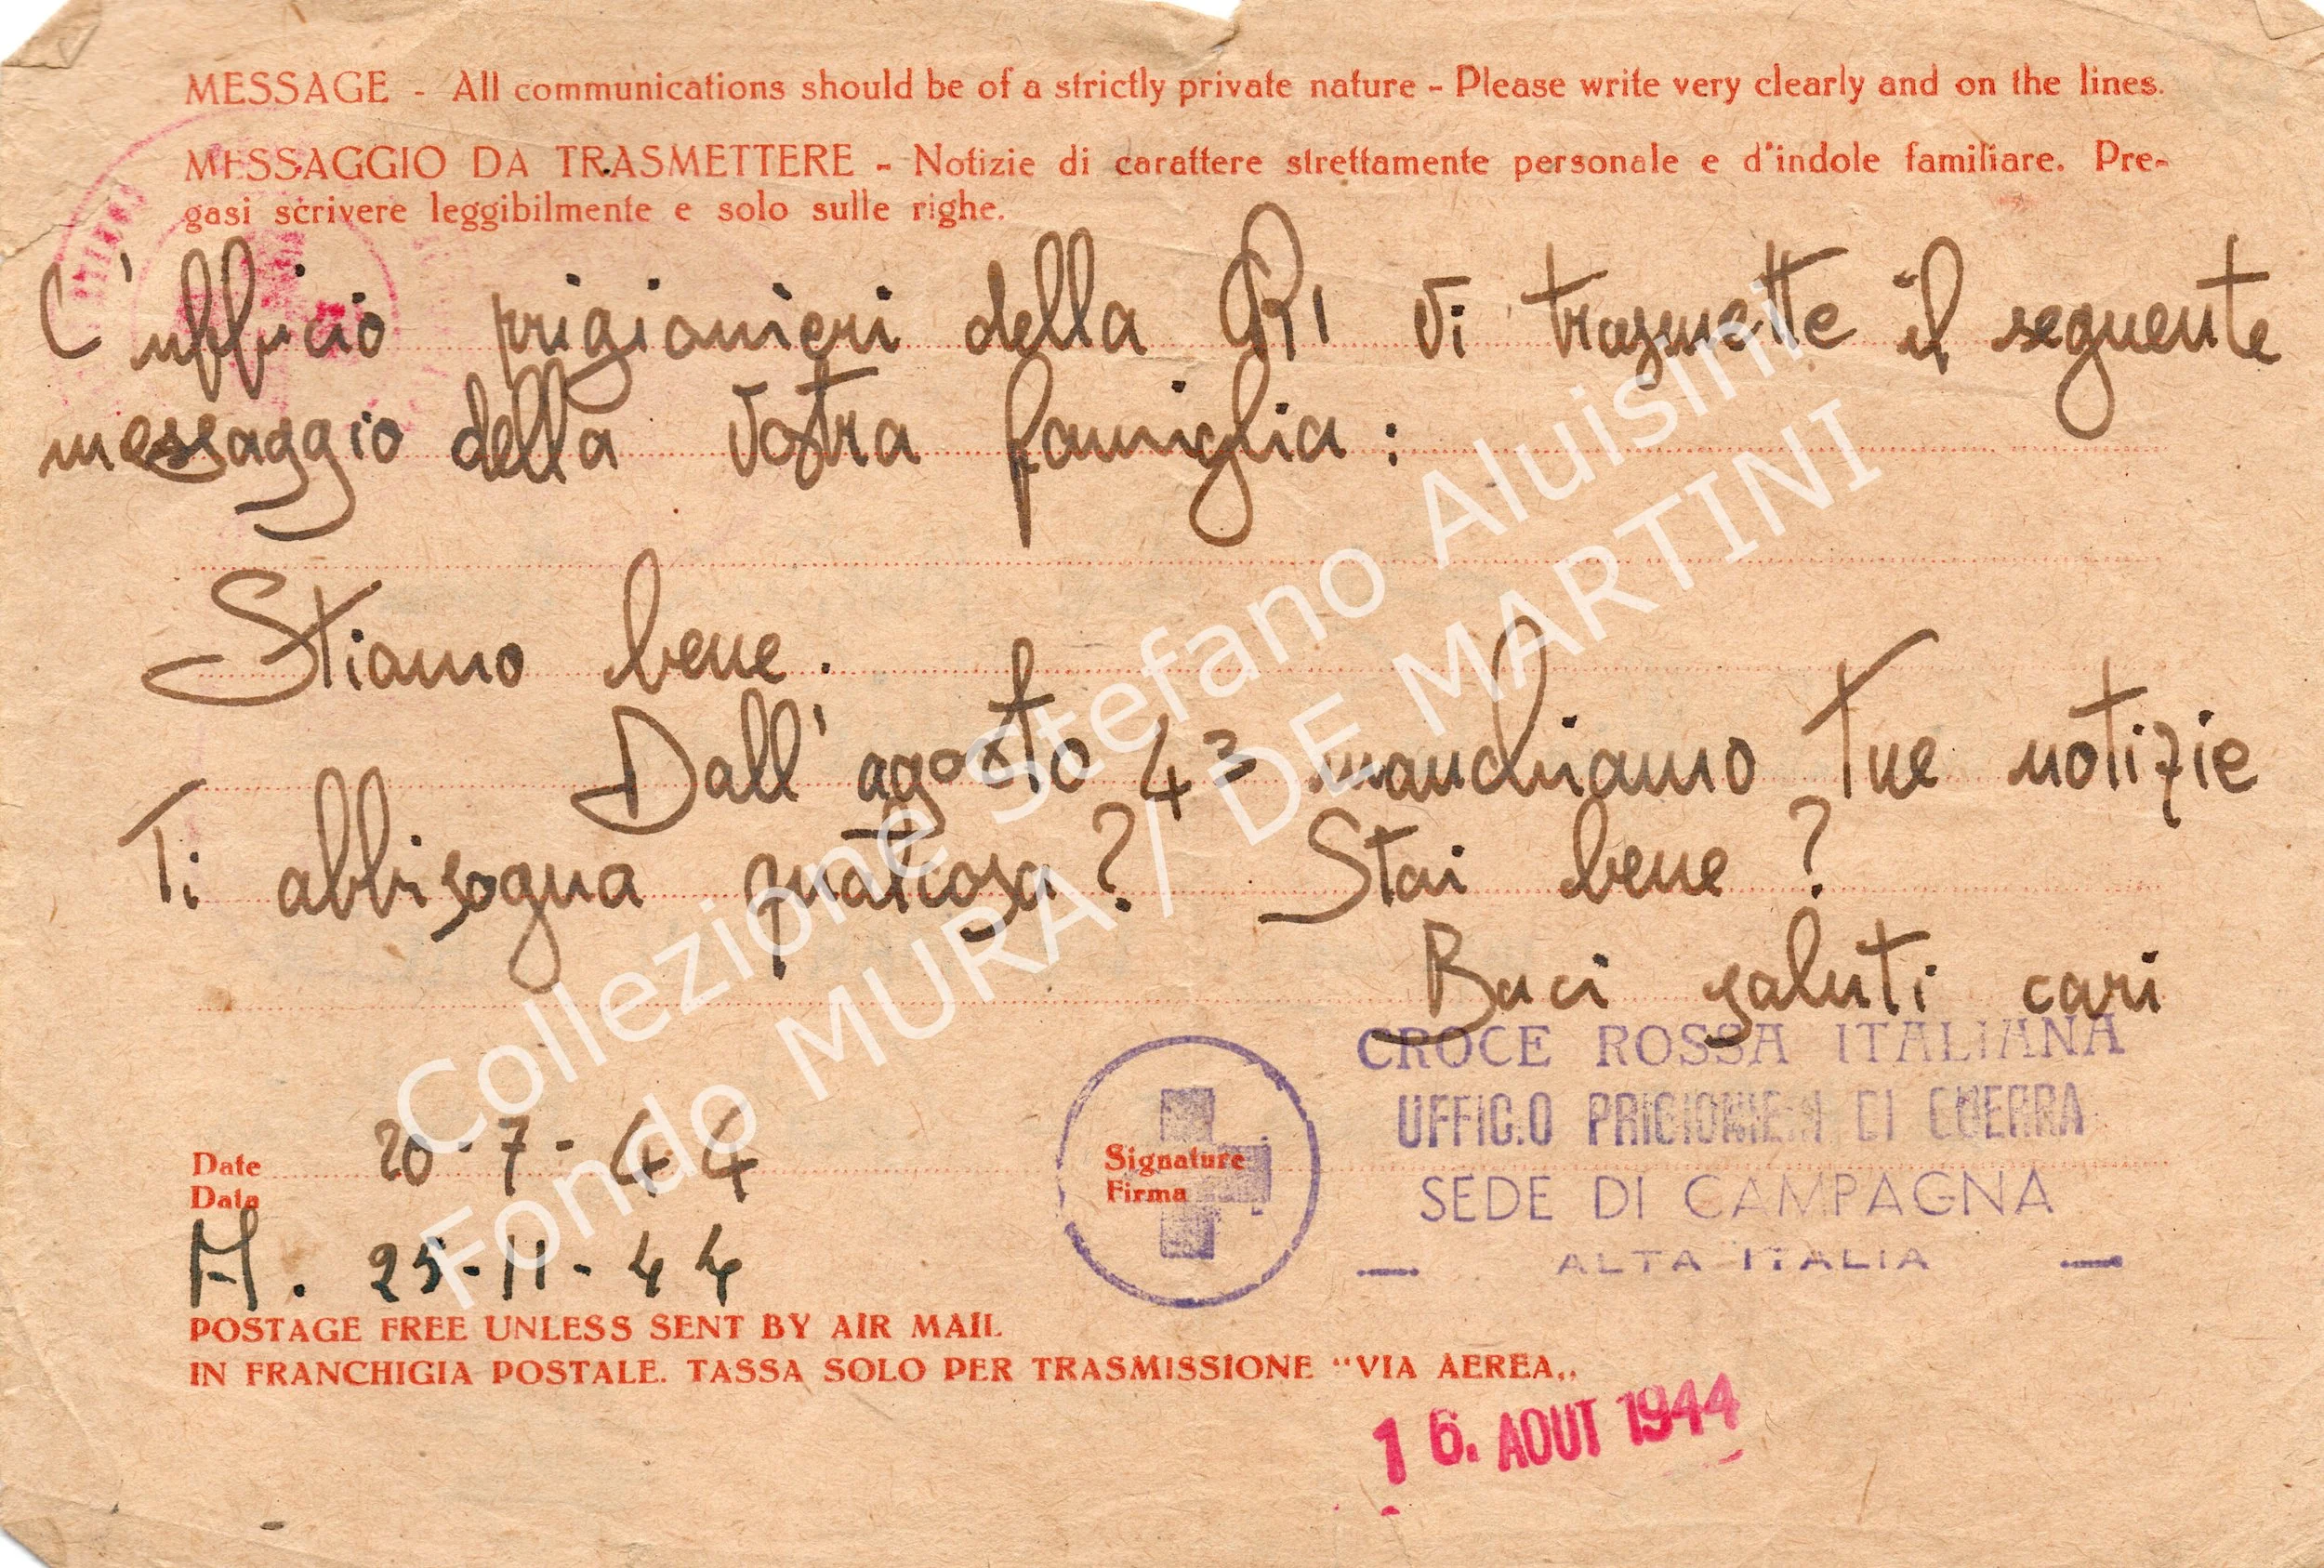 MESSAGE - All communications should be of a strictly private nature - Please write very clearly and on the lines.
MESSAGGIO DA TRASMETTERE - Notizie di carattere strettamente personale e d'indole familiare. Pre-
gasi scrivere leggibilmente e solo sulle righe.
L'ufficio prigionieri della CRI vi trasmette il seguente
messaggio della vostra famiglia:
Stiamo bene.
Dall'agosto 43 manchiamo tue notizie
Ti abbisogna qualcosa? Stai bene?
Baci saluti cari
CROCE ROSSA ITALIANA
UFFIC.O PRIGIONIERI DI GUERRA
SEDE DI CAMPAGNA
ALTA ITALIA
Date
Data
20-7-44
Signature
Firma
A. 25-11-44
POSTAGE FREE UNLESS SENT BY AIR MAIL
IN FRANCHIGIA POSTALE. TASSA SOLO PER TRASMISSIONE "VIA AEREA„
16. AOUT 1944
Collezione Stefano Aluisini
Fondo MURA / DE MARTINI